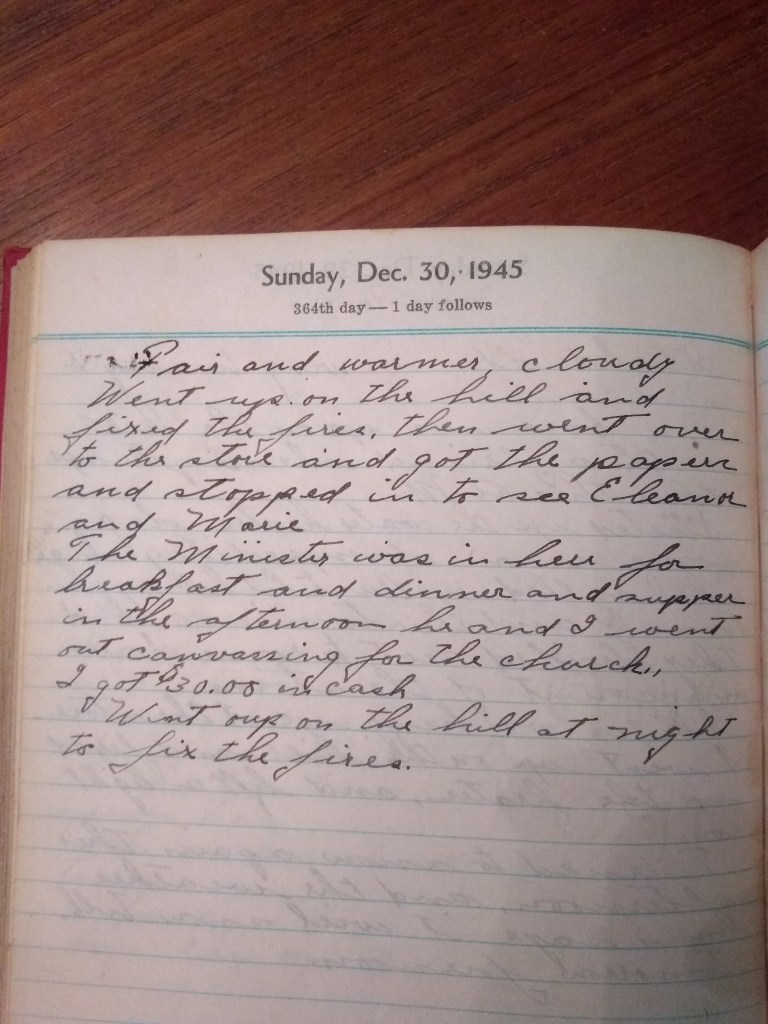 Sunday, Dec. 30, 1945
364th day — 1 day follows
Fair and warmer, cloudy
Went up on the hill and
fixed the fires, then went over
to the store and got the paper
and stopped in to see Eleanor
and Marie
The Minister was in here for
breakfast and dinner and supper
in the afternoon he and I went
out canvassing for the church.,
I got $30.00 in cash
Went oup on the hill at night
to fix the fires.